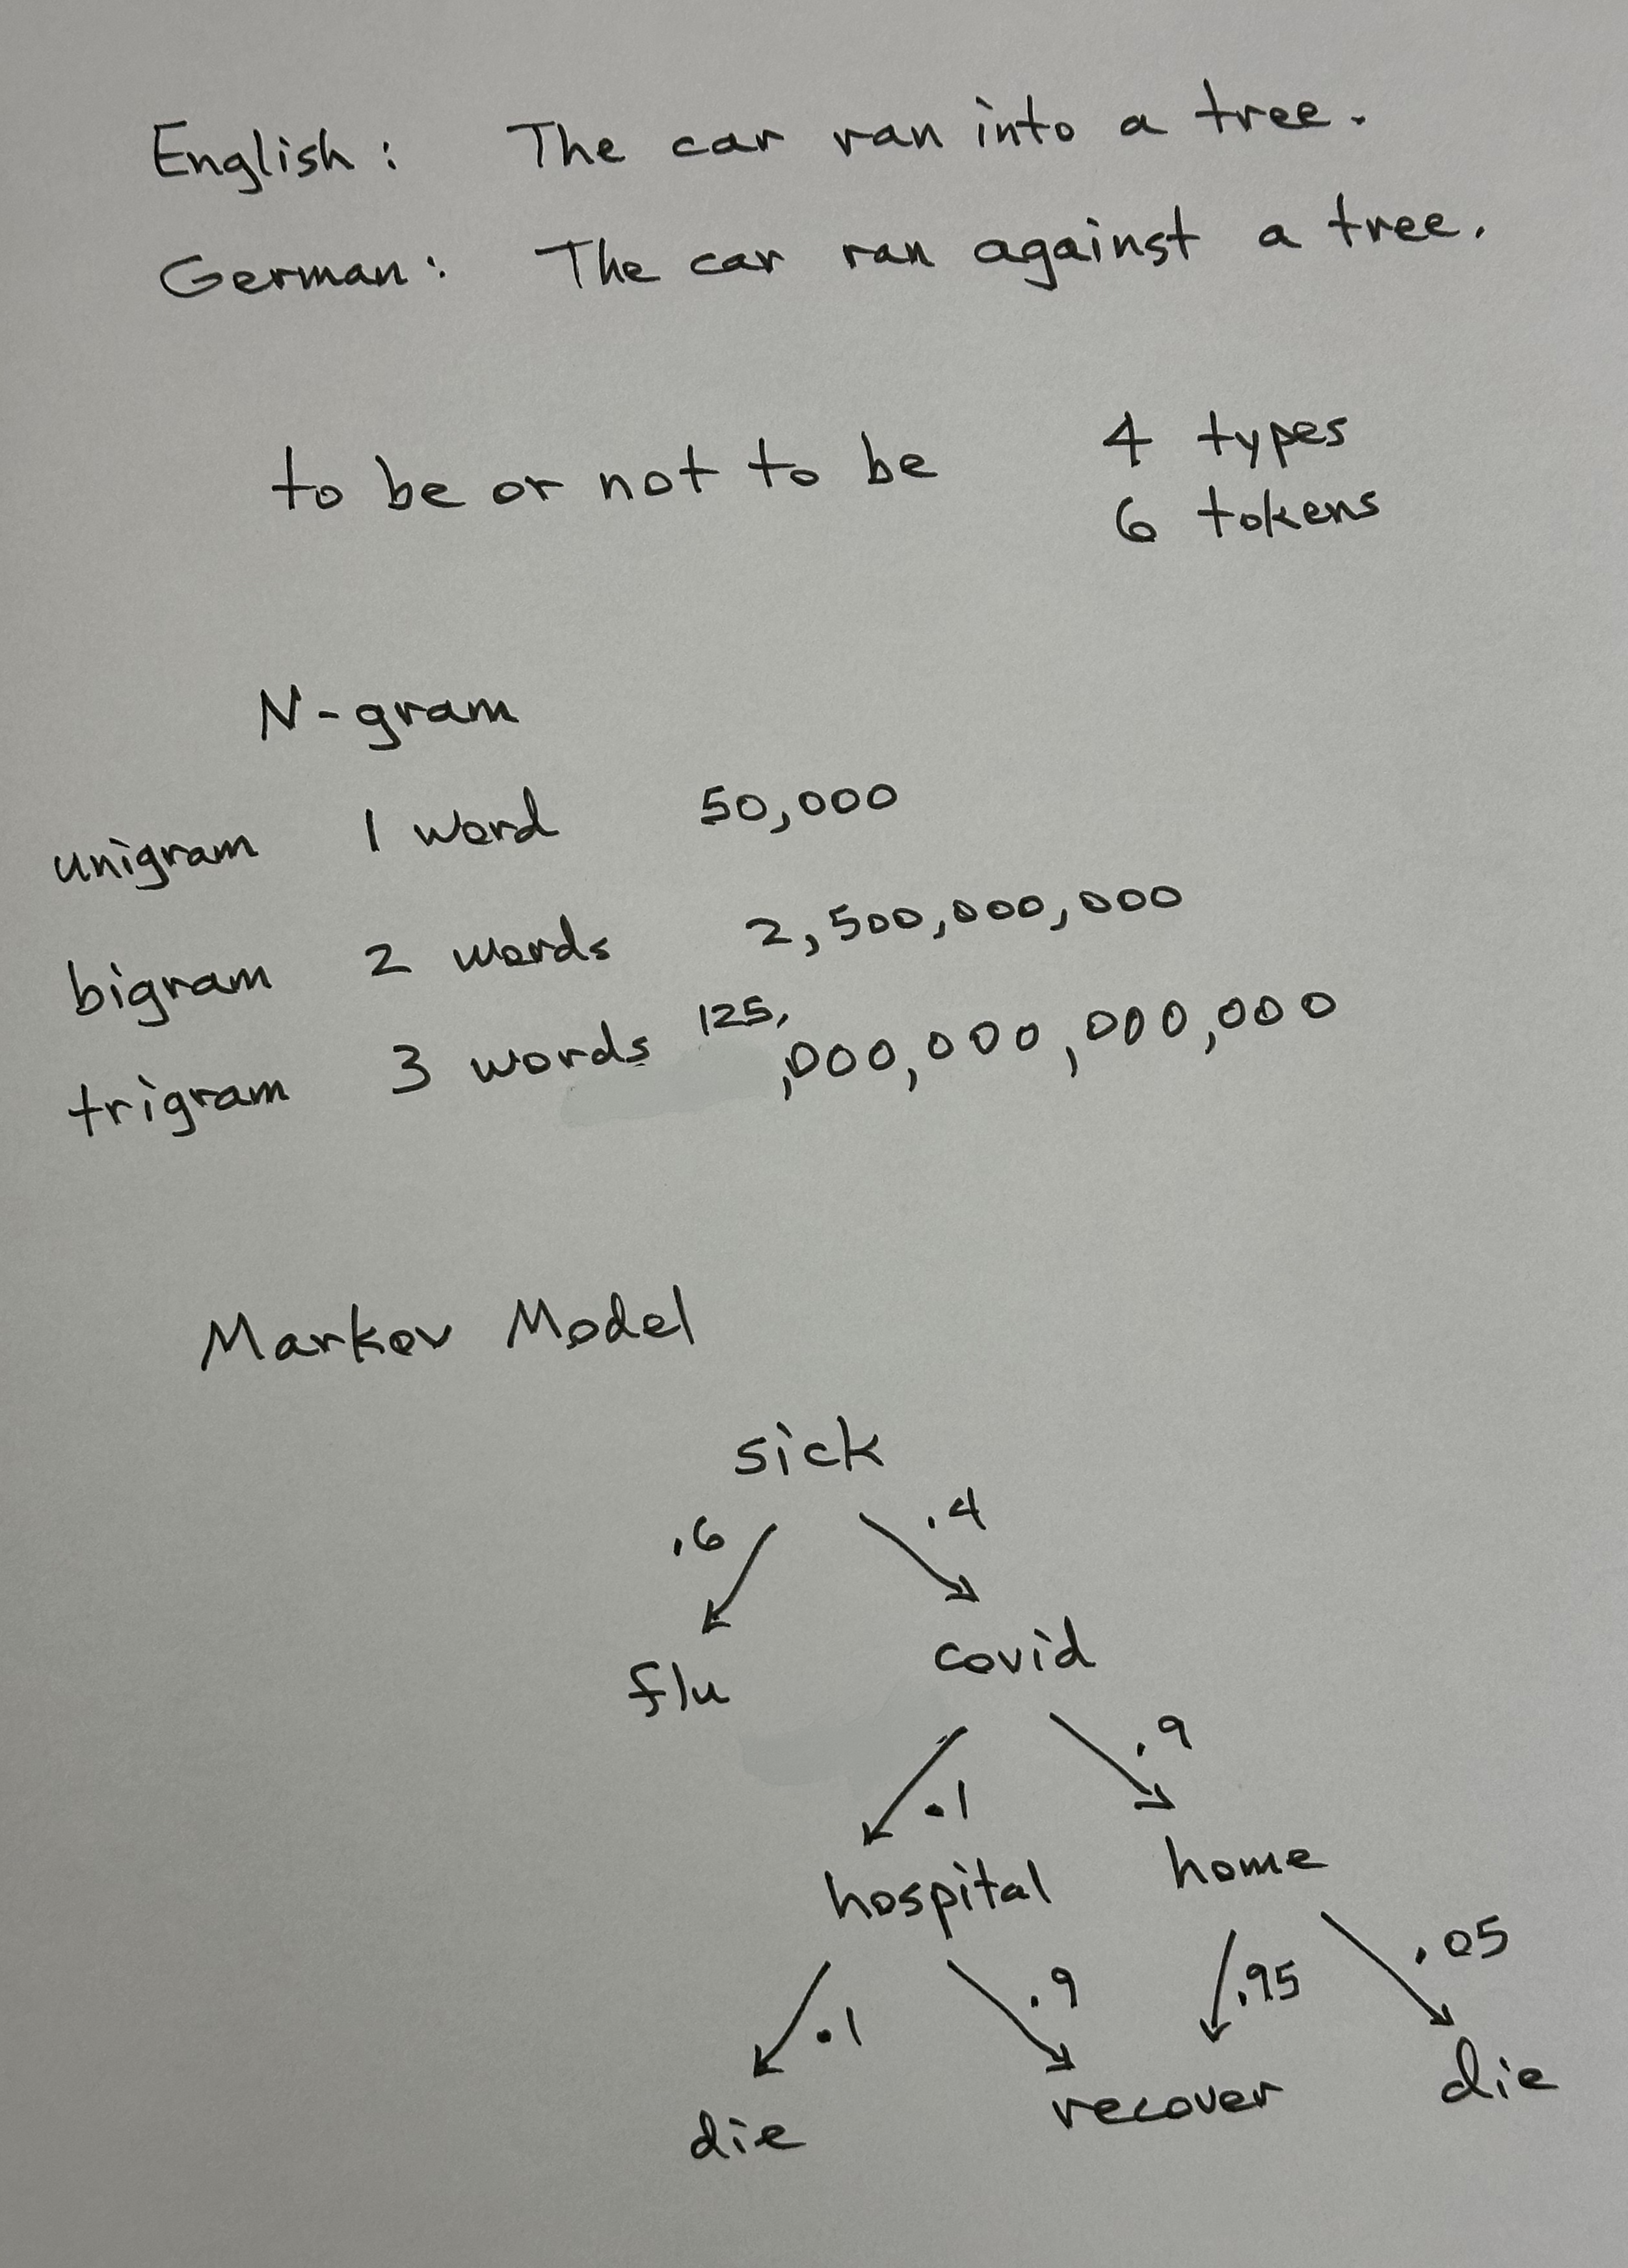 English: The car ran into a tree.
German: The car ran against a tree.
to be or not to be 4 types
6 tokens
N-gram
unigram 1 word 50,000
bigram 2 words 2,500,000,000
trigram 3 words 125,
,000,000,000,000
Markov Model
sick
.6 .4
flu covid
.1 .9
hospital home
.1 .9 .95 .05
die recover die